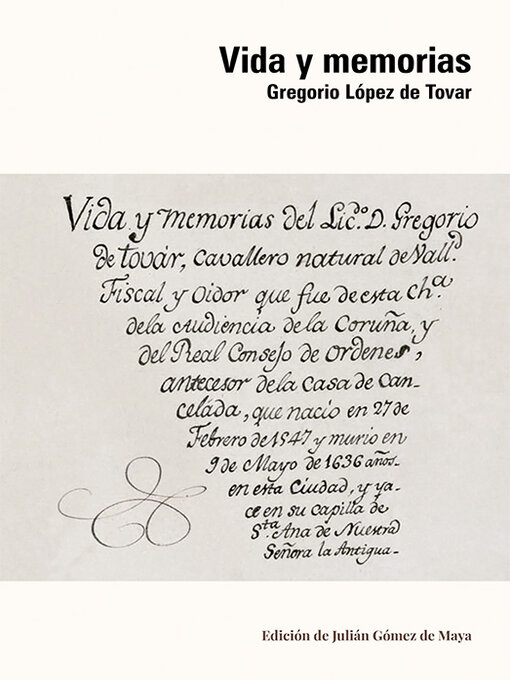 Vida y memorias
Gregorio López de Tovar
Vida y memorias del Lic.º D. Gregorio
de továr, cavallero natural de Vall.d
Fiscal y Oidor que fue de esta Ch.a
de la Audiencia de la Coruña, y
del Real Consejo de Ordenes,
antecesor de la Casa de Can-
celáda, que nacio en 27 de
Febrero de 1547 y murio en
9 de Mayo de 1636 años.
en esta Ciudad, y ya-
ce en su capilla de
S.ta Ana de Nuestra
Señora la Antigua.-
Edición de Julián Gómez de Maya